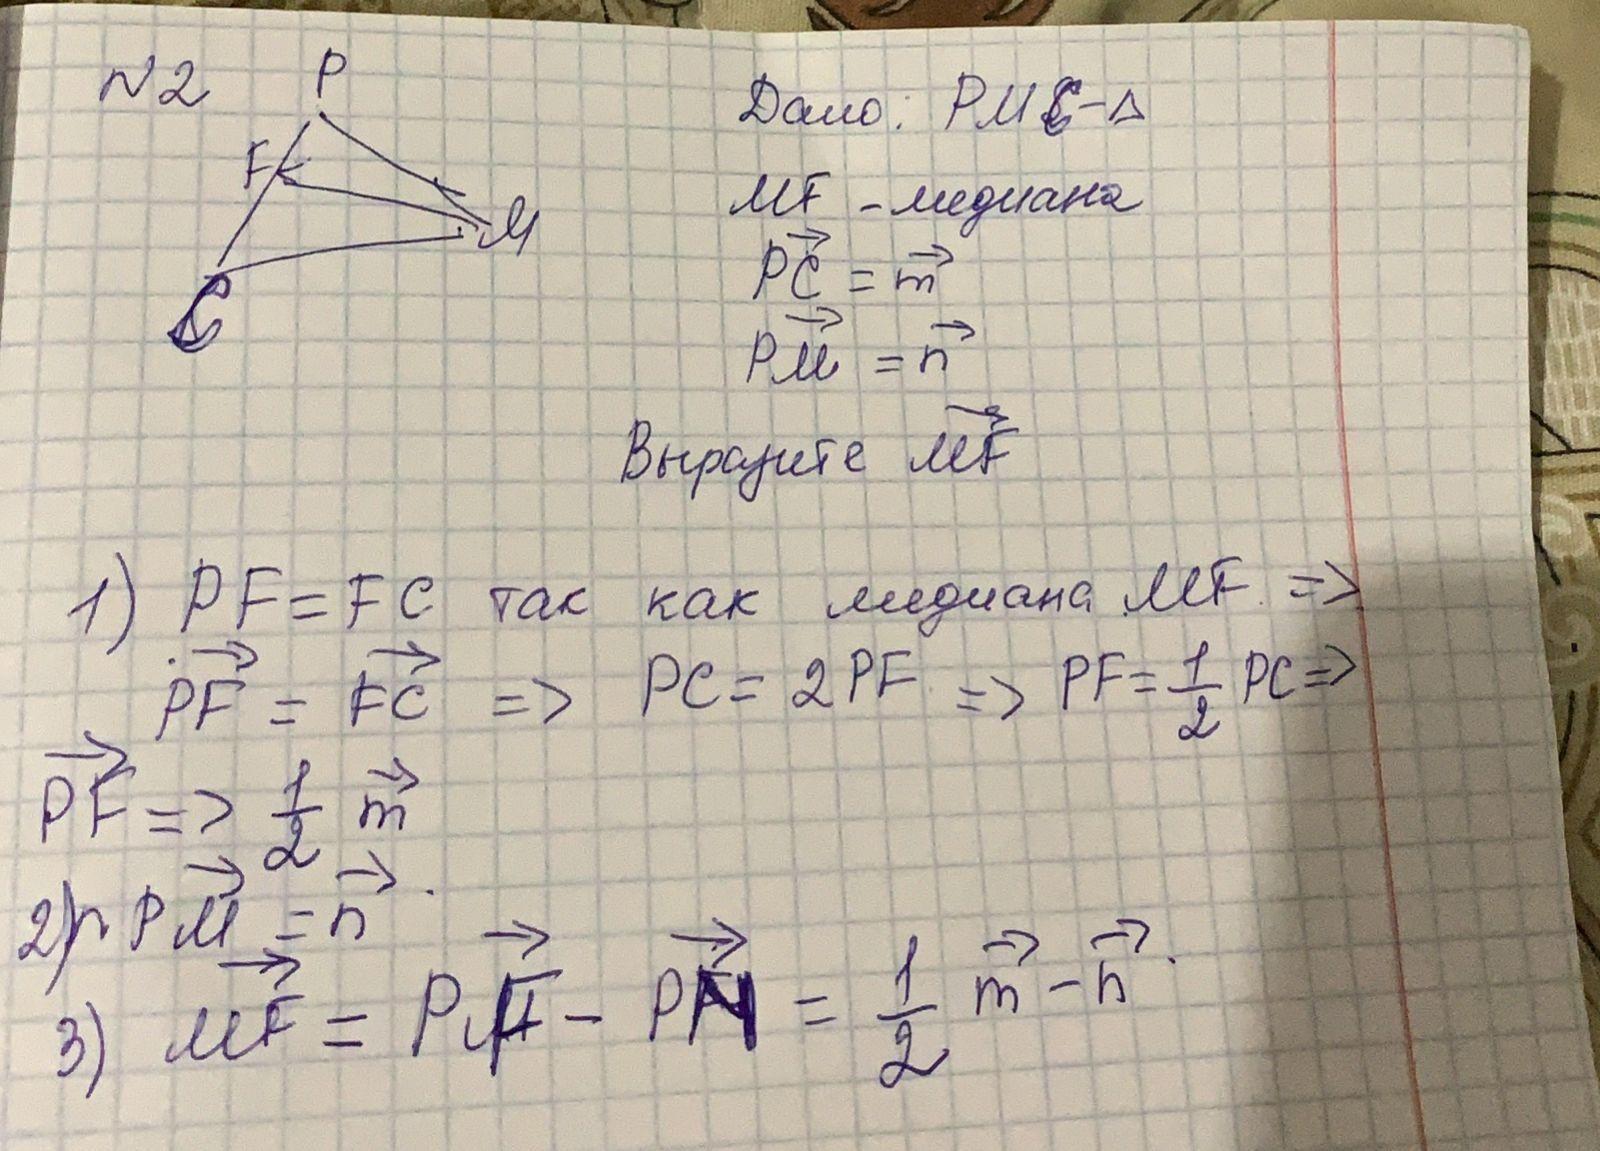 N2
P
F
M
C
Дано: PMC-Δ
MF - медиана
PC⃗ = m⃗
PM⃗ = n⃗
Выразите MF⃗
1) PF = FC так как медиана MF =>
PF⃗ = FC⃗ => PC = 2PF => PF = 1/2 PC =>
PF⃗ => 1/2 m⃗
2) PM⃗ = n⃗.
3) MF⃗ = PF⃗ - PM⃗ = 1/2 m⃗ - n⃗.